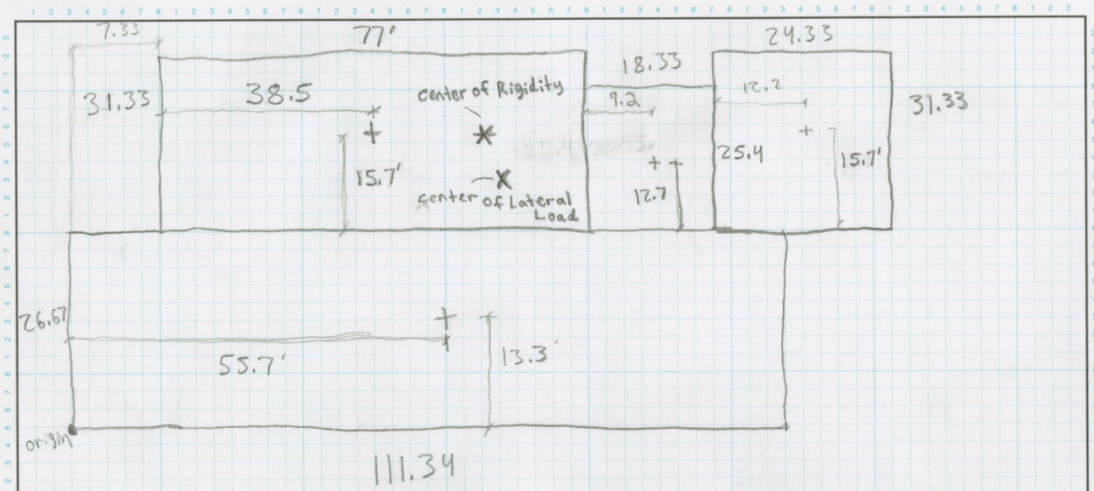 7.33
77'
24.33
18.33
31.33
38.5
center of Rigidity
9.2
12.2
31.33
15.7'
25.4
15.7'
center of Lateral
Load
12.7
26.67
55.7'
13.3'
origin
111.34